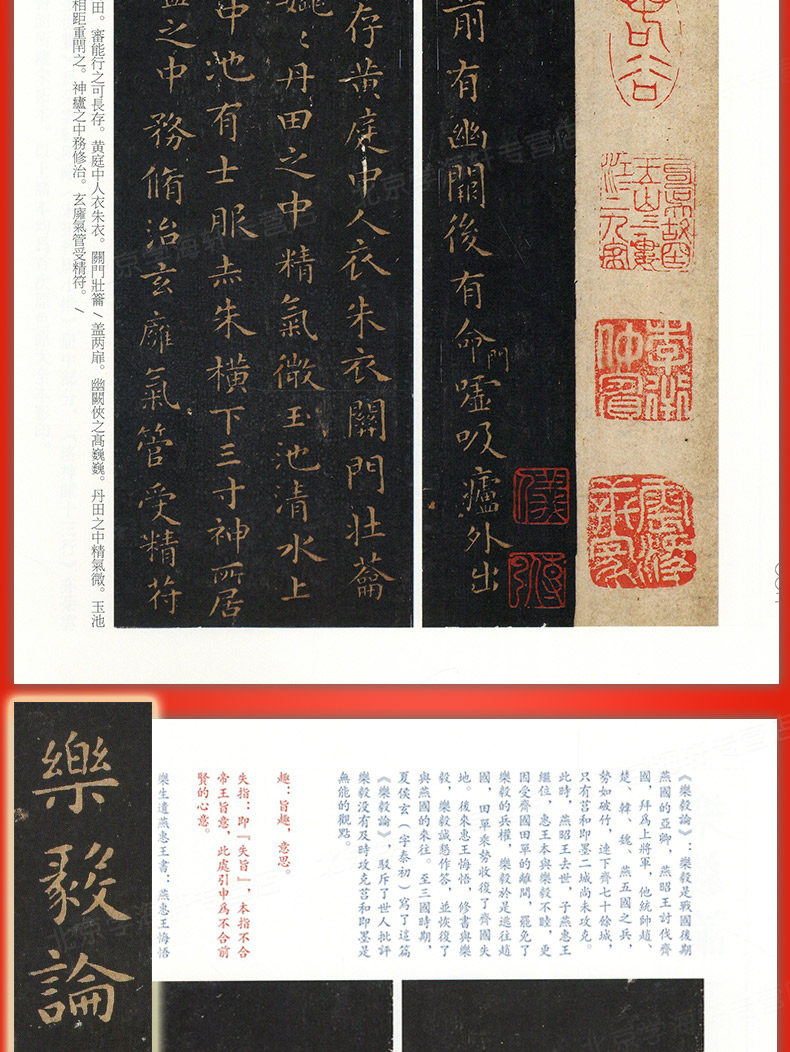 前有幽闕後有命門嘘吸廬外出
存黄庭中人衣朱衣關門壯蘥
巍〻丹田之中精氣微玉池清水上
中池有士服赤朱横下三寸神所居
之中務脩治玄廱氣管受精符
田。審能行之可長存。黄庭中人衣朱衣。關門壯籥/蓋两扉。幽闕俠之高巍巍。丹田之中精氣微。玉池
相距重閉之。神廬之中務修治。玄廱氣管受精符。/
《樂毅論》：樂毅是戰國後期
燕國的亞卿，燕昭王討伐齊
國，拜爲上將軍，他統帥趙、
楚、韓、魏、燕五國之兵，
勢如破竹，連下齊七十餘城，
只有莒和即墨二城尚未攻克。
此時，燕昭王去世，子燕惠王
繼位，惠王本與樂毅不睦，更
因受齊國田單的離間，罷免了
樂毅的兵權，樂毅於是逃往趙
國，田單乘勢收復了齊國失
地。後來惠王悔悟，修書與樂
毅，樂毅誠懇作答，並恢復了
與燕國的來往。至三國時期，
夏侯玄（字泰初）寫了這篇
《樂毅論》，駁斥了世人批評
樂毅没有及時攻克莒和即墨是
無能的觀點。
趣：旨趣，意思。
失指：即『失旨』，本指不合
帝王旨意，此處引申爲不合前
賢的心意。
樂生遺燕惠王書：燕惠王悔悟
樂毅論